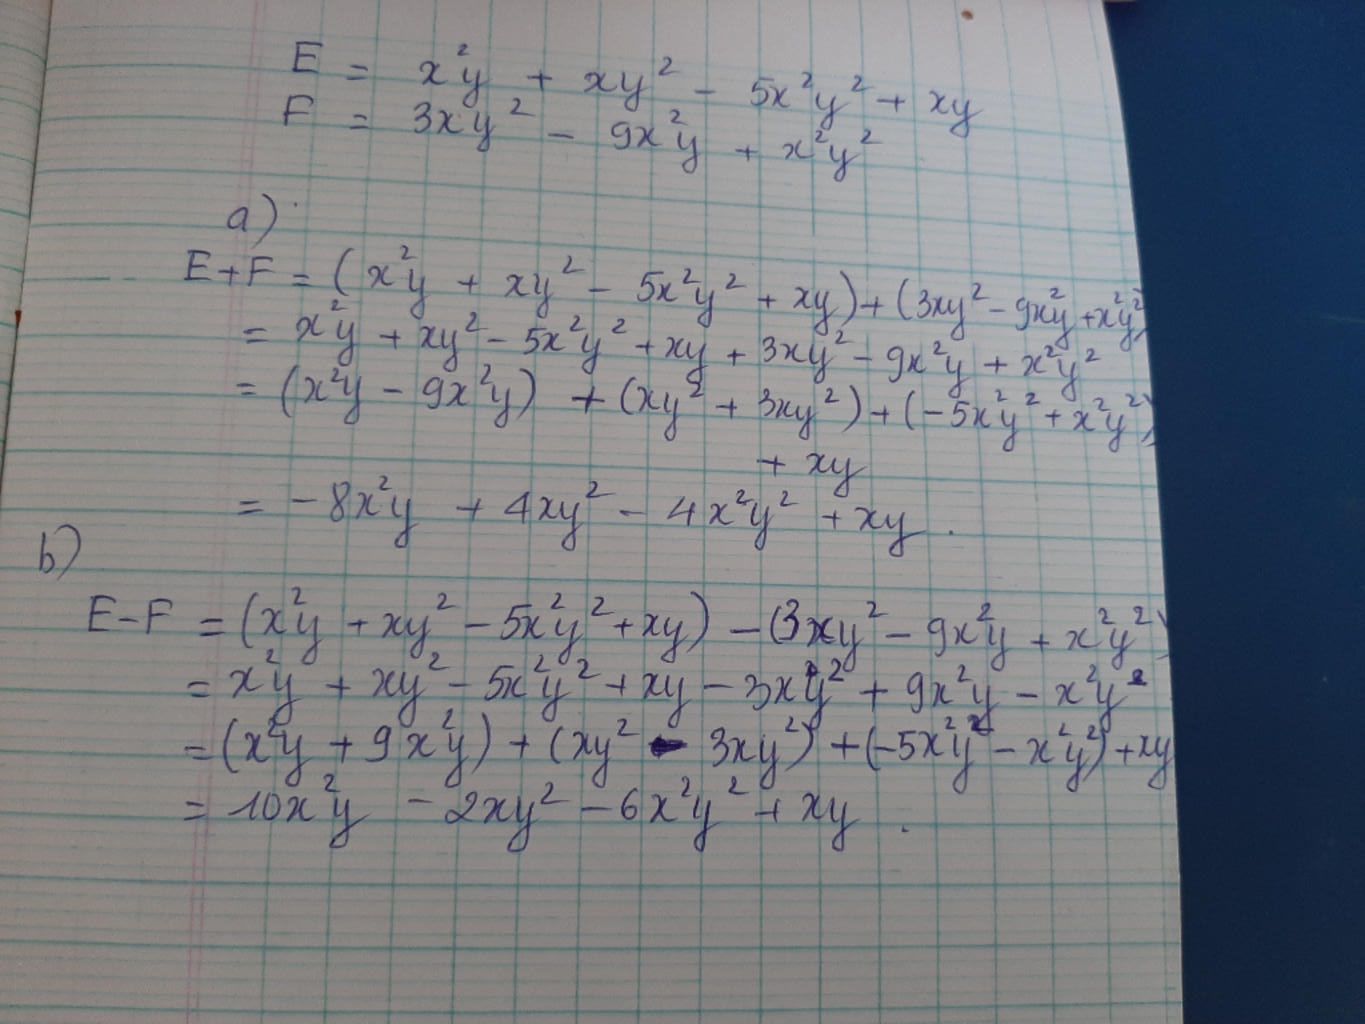 E = x²y + xy² - 5x²y² + xy
F = 3xy² - 9x²y + x²y²
a)
E+F = (x²y + xy² - 5x²y² + xy) + (3xy² - 9x²y + x²y²)
= x²y + xy² - 5x²y² + xy + 3xy² - 9x²y + x²y²
= (x²y - 9x²y) + (xy² + 3xy²) + (-5x²y² + x²y²)
+ xy
= -8x²y + 4xy² - 4x²y² + xy.
b)
E-F = (x²y + xy² - 5x²y² + xy) - (3xy² - 9x²y + x²y²)
= x²y + xy² - 5x²y² + xy - 3xy² + 9x²y - x²y²
= (x²y + 9x²y) + (xy² - 3xy²) + (-5x²y² - x²y²) + xy
= 10x²y - 2xy² - 6x²y² + xy.